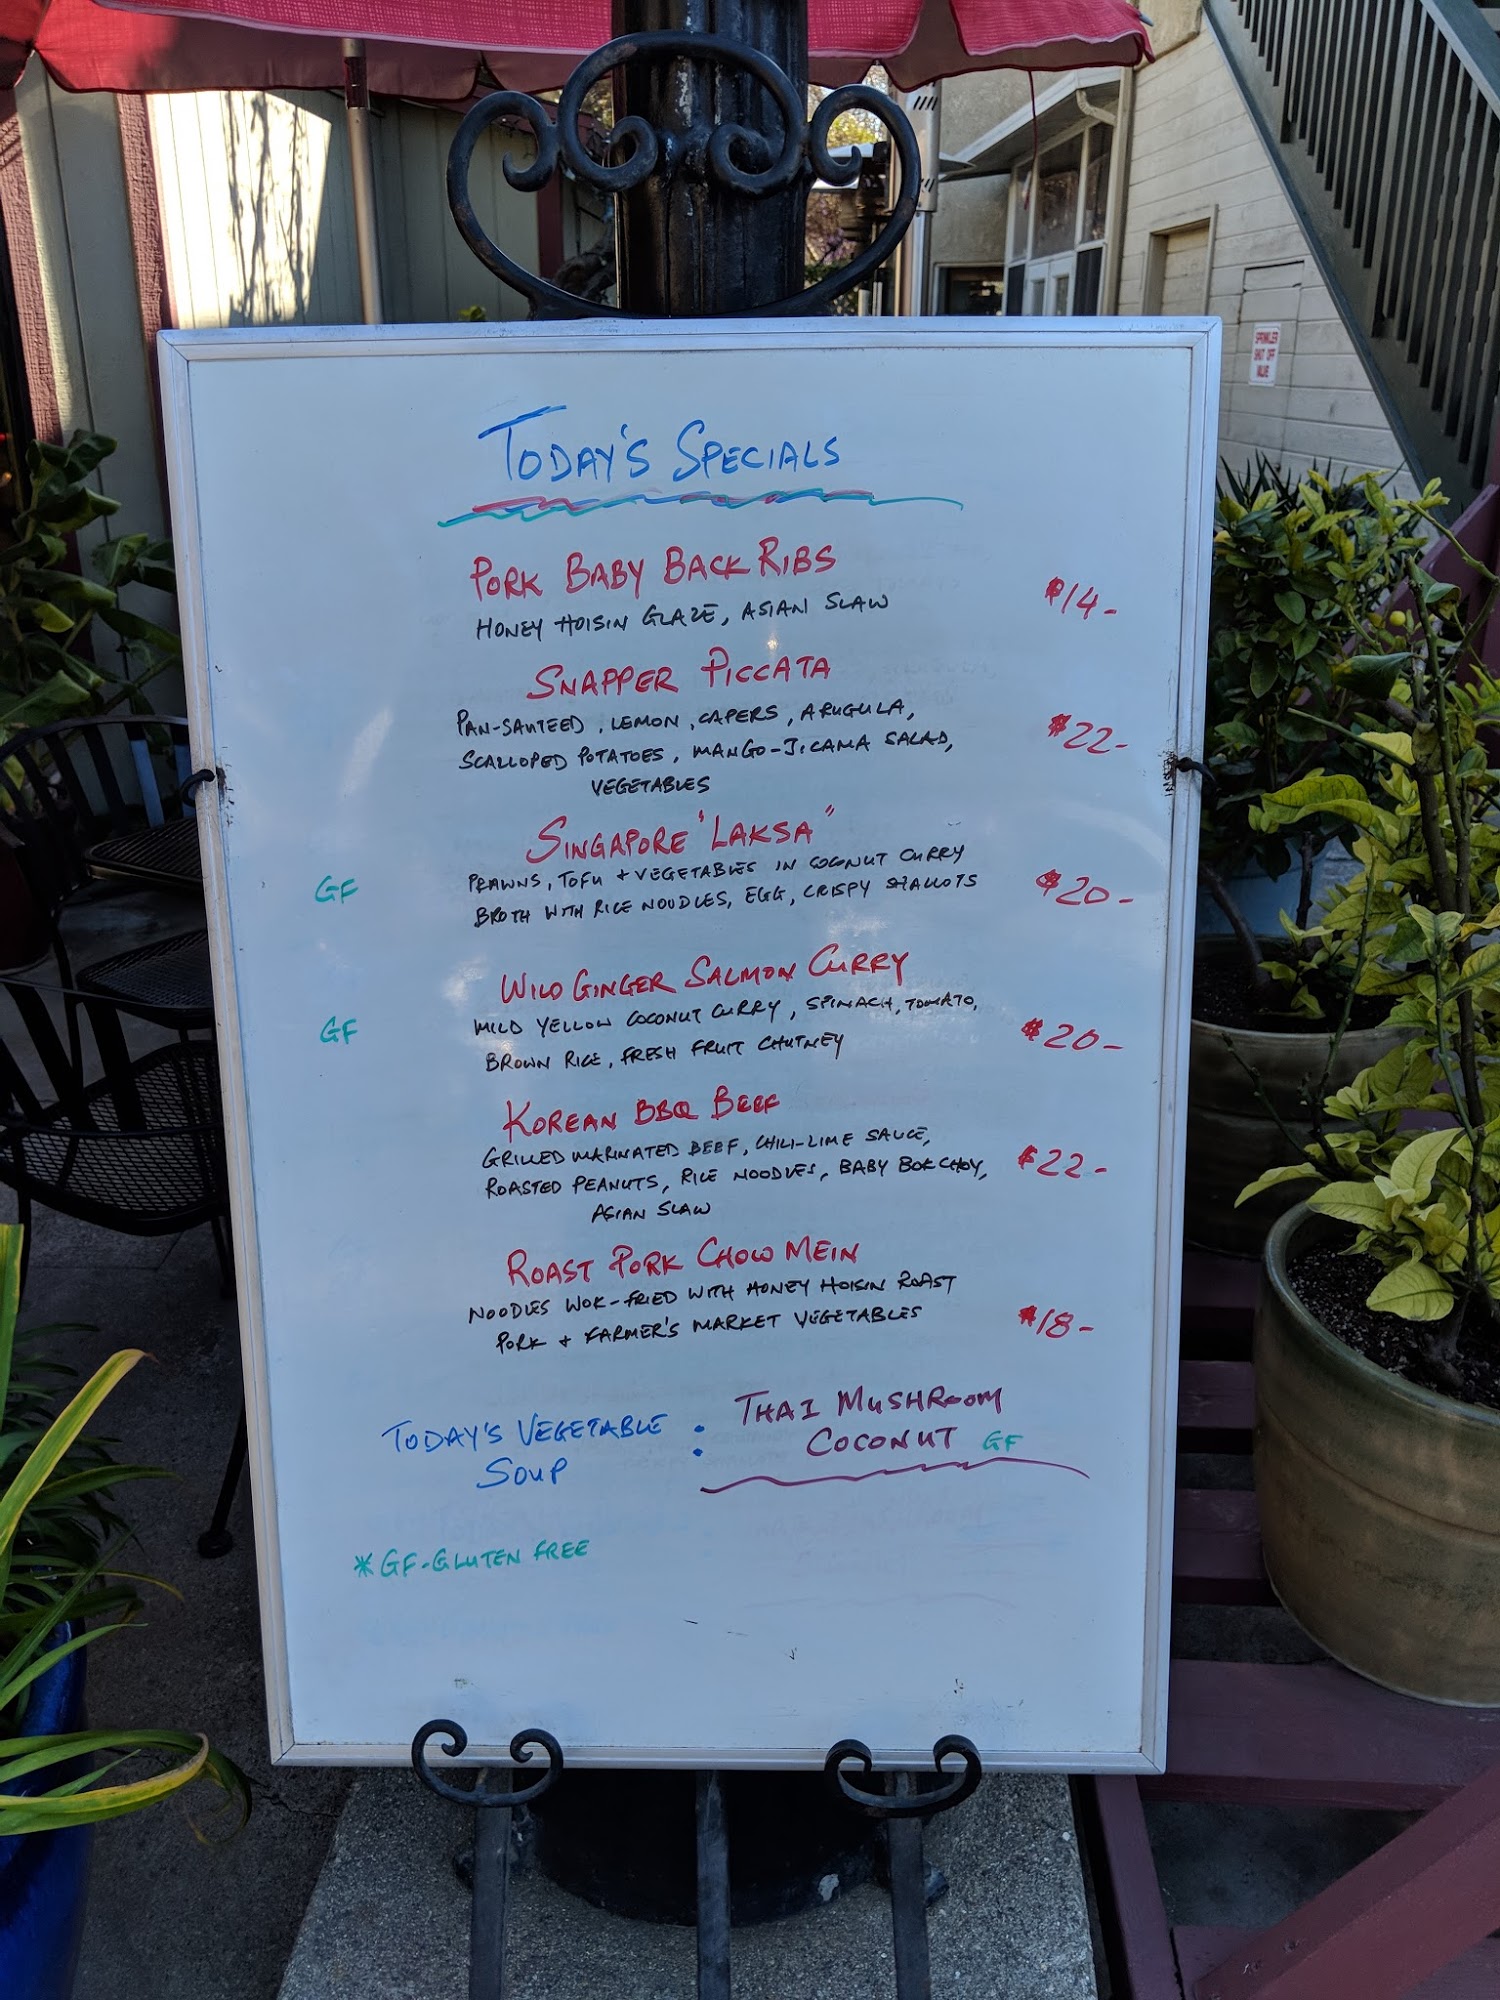 SPRINKLER
SHUT OFF
VALVE
TODAY'S SPECIALS
PORK BABY BACK RIBS
HONEY HOISIN GLAZE, ASIAN SLAW
$14-
SNAPPER PICCATA
PAN-SAUTEED, LEMON, CAPERS, ARUGULA,
SCALLOPED POTATOES, MANGO-JICAMA SALAD,
VEGETABLES
$22-
SINGAPORE "LAKSA"
GF
PRAWNS, TOFU + VEGETABLES IN COCONUT CURRY
BROTH WITH RICE NOODLES, EGG, CRISPY SHALLOTS
$20-
WILD GINGER SALMON CURRY
GF
MILD YELLOW COCONUT CURRY, SPINACH, TOMATO,
BROWN RICE, FRESH FRUIT CHUTNEY
$20-
KOREAN BBQ BEEF
GRILLED MARINATED BEEF, CHILI-LIME SAUCE,
ROASTED PEANUTS, RICE NOODLES, BABY BOK CHOY,
ASIAN SLAW
$22-
ROAST PORK CHOW MEIN
NOODLES WOK-FRIED WITH HONEY HOISIN ROAST
PORK + FARMER'S MARKET VEGETABLES
$18-
TODAY'S VEGETABLE
SOUP
:
THAI MUSHROOM
COCONUT GF
*GF-GLUTEN FREE